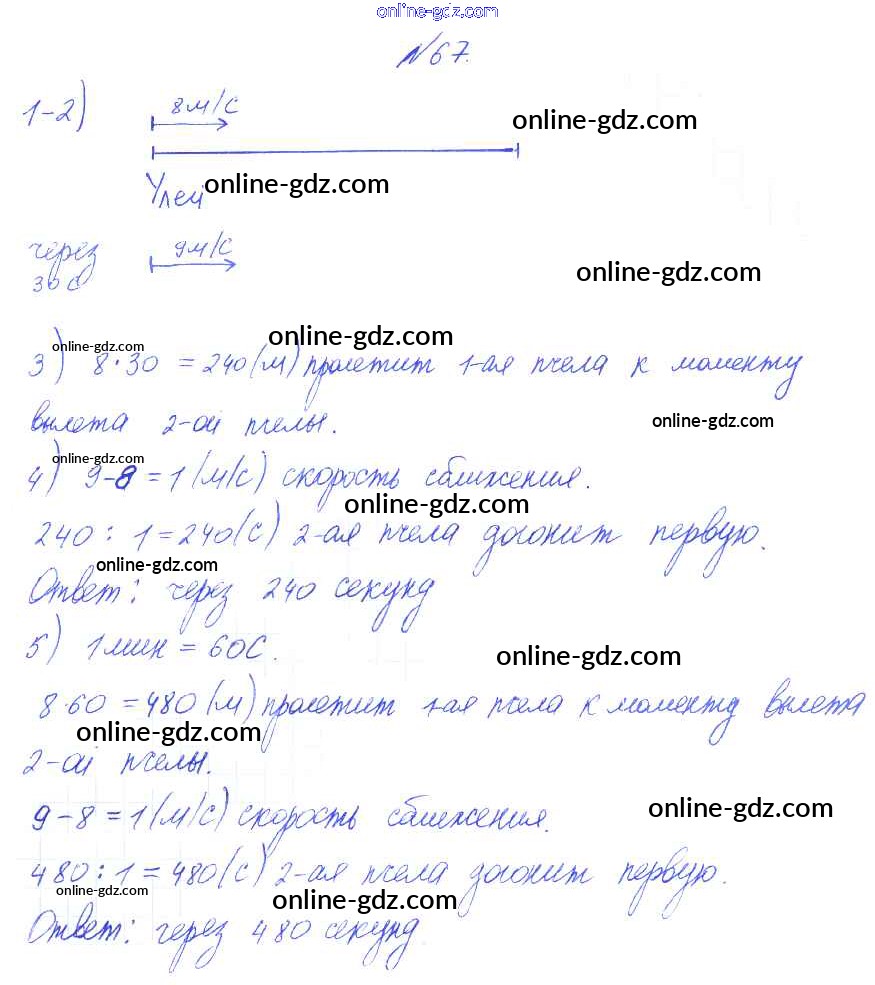 online-gdz.com
№67.
1-2) 8м/с
online-gdz.com
Улей online-gdz.com
через 9м/с
30 с
online-gdz.com
online-gdz.com
online-gdz.com
3) 8·30 = 240(м) пролетит 1-ая пчела к моменту
вылета 2-ой пчелы.
online-gdz.com
online-gdz.com
4) 9-8 = 1(м/с) скорость сближения.
online-gdz.com
240 : 1 = 240(с) 2-ая пчела догонит первую.
online-gdz.com
Ответ: через 240 секунд
5) 1мин = 60с.
online-gdz.com
8·60 = 480(м) пролетит 1-ая пчела к моменту вылета
online-gdz.com
2-ой пчелы.
online-gdz.com
9-8 = 1(м/с) скорость сближения.
480 : 1 = 480(с) 2-ая пчела догонит первую.
online-gdz.com
online-gdz.com
Ответ: через 480 секунд.